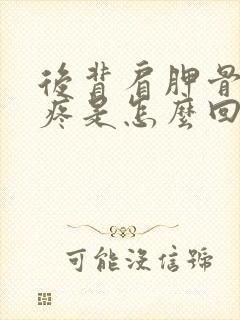 後背肩胛骨
疼是怎麼回
可能沒信號